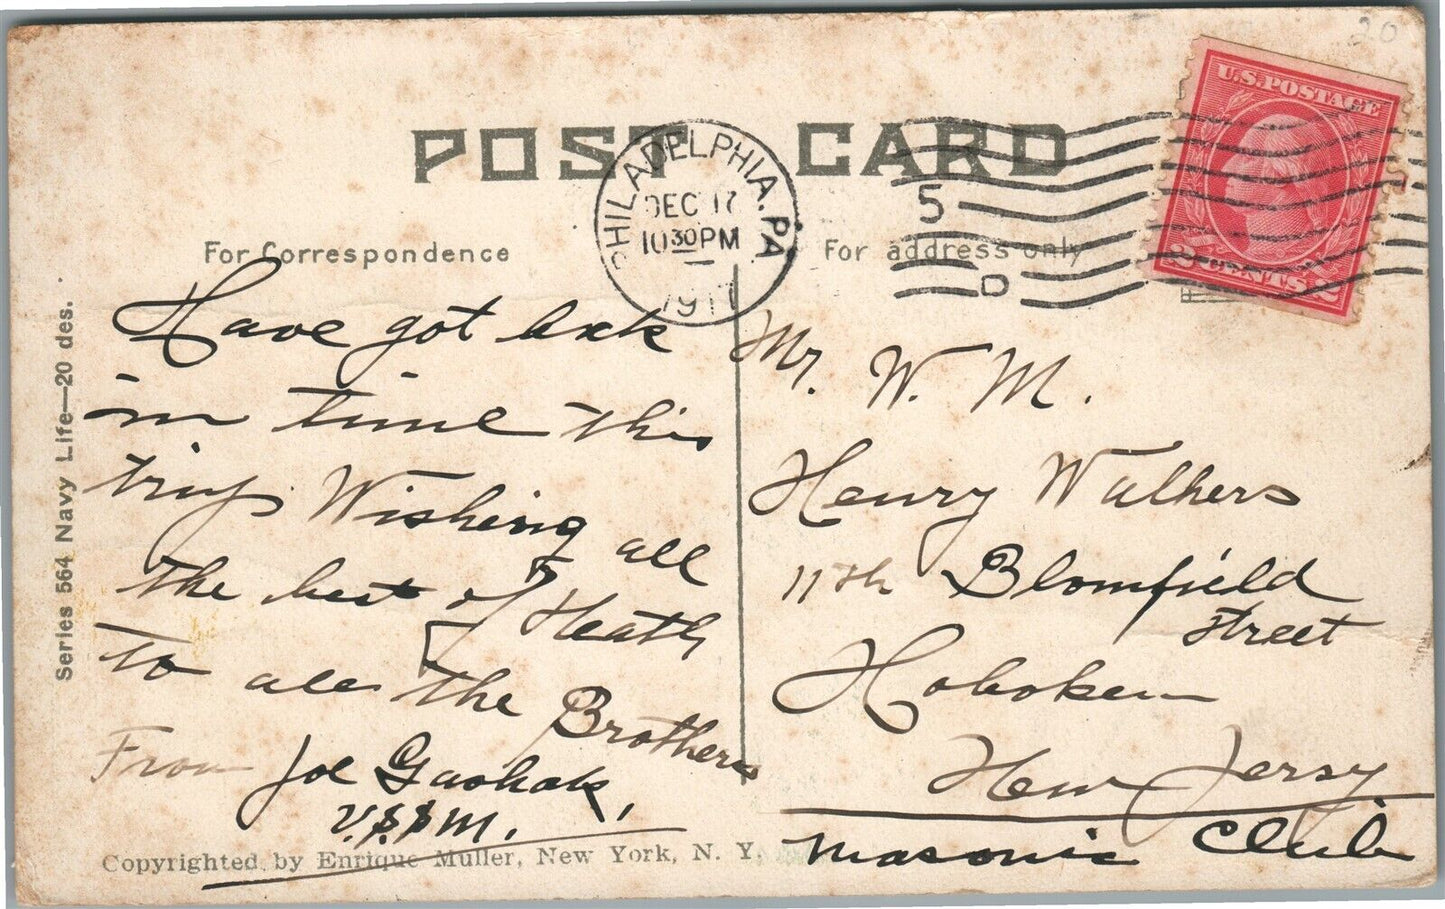 20
POST CARD
U.S. POSTAGE
2 CENTS 2
PHILADELPHIA, PA
DEC 17
10 30 PM
1917
5
D
For Correspondence
For address only
Have got back
in time this
trip. Wishing all
the best of Heath
to all the Brothers
From Joe
Mr. W. M.
Henry Walhers
11th Blomfield
Street
Hoboken
New Jersy
Masonic Club
Series 564 Navy Life—20 des.
Copyrighted by Enrique Muller, New York, N. Y.